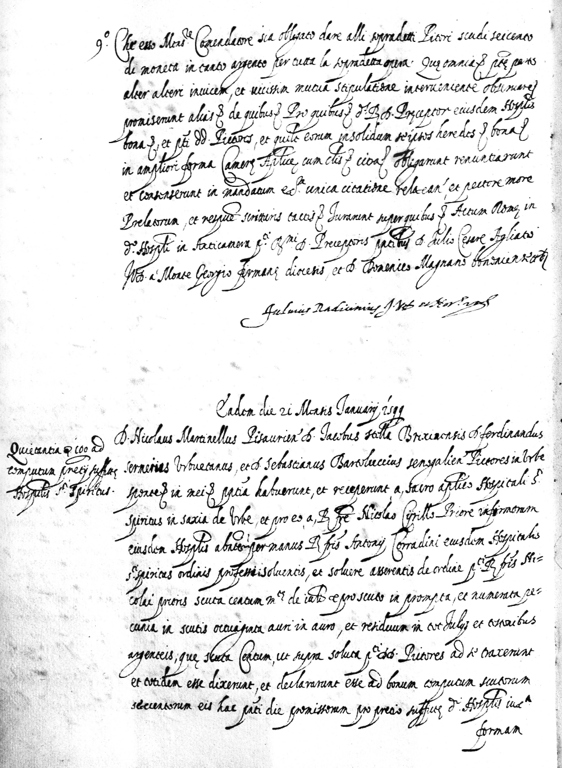 9.º Che esso Mons.re Comendatore sia obligato dare alli sopradetti Pittori scudi seicento
di moneta in tanto argento per tutta la sopradetta opera. Que omnia
alter alteri invicem, et vicissim mutua stipulatione interveniente
promiserunt alias de quibus Pro quibus d. R. D. Preceptor eiusdem Hosplis
bona, et pti DD. Pictores, et quilt eorum insolidum seipsos heredes bona
in ampliori forma Camere Aplice cum obligarunt renuntiarunt
et consenserunt in mandatum unica citatione et pectore more
Prelatorum, et scripturis tactis Iurarunt super quibus Actum Rome in
d.º Hospli in D. Preceptoris D. Iulio Cesare Agliato
I.V.D. a Monte Georgio firmane diocesis, et D. Domenico Magnano
Fulvius
Eadem die 21 Mensis Januarij 1599
Quietantia 100 ad
computum pretij
Hosplis S.ti Spiritus.
D. Nicolaus Martinellus Pisaurien D. Iacobus Stella Brixiensis D. ferdinandus
sermirius Urbuetanus, et D. Sebastianus Bartoluccius senogalien Pictores in Urbe
sponte in mei habuerunt, et receperunt a sacro aplico Hospitali S.ti
spiritus in saxia de Urbe, et pro eo a R. fre Nicolao Cyrillo Priore infirmorum
eiusdem Hosplis per manus R. fris Antonij Corradini eiusdem Hospitalis
S.ti spiritus ordinis professi solventis, et solvere asserentis de ordine R. fris Ni=
colai prioris scuta centum m.te de pro scuto in prompta, et numerata pe=
cunia in scutis octuaginta auri in auro, et residuum in tot Iulijs et testonibus
argenteis, que scuta Centum, ut supra soluta DD. Pictores ad se traxerunt
et totidem esse dixerunt, et declararunt esse ad bonum computum scutorum
sexcentorum eis hac die promissorum pro precio d.ti Hosplis iuxta
formam